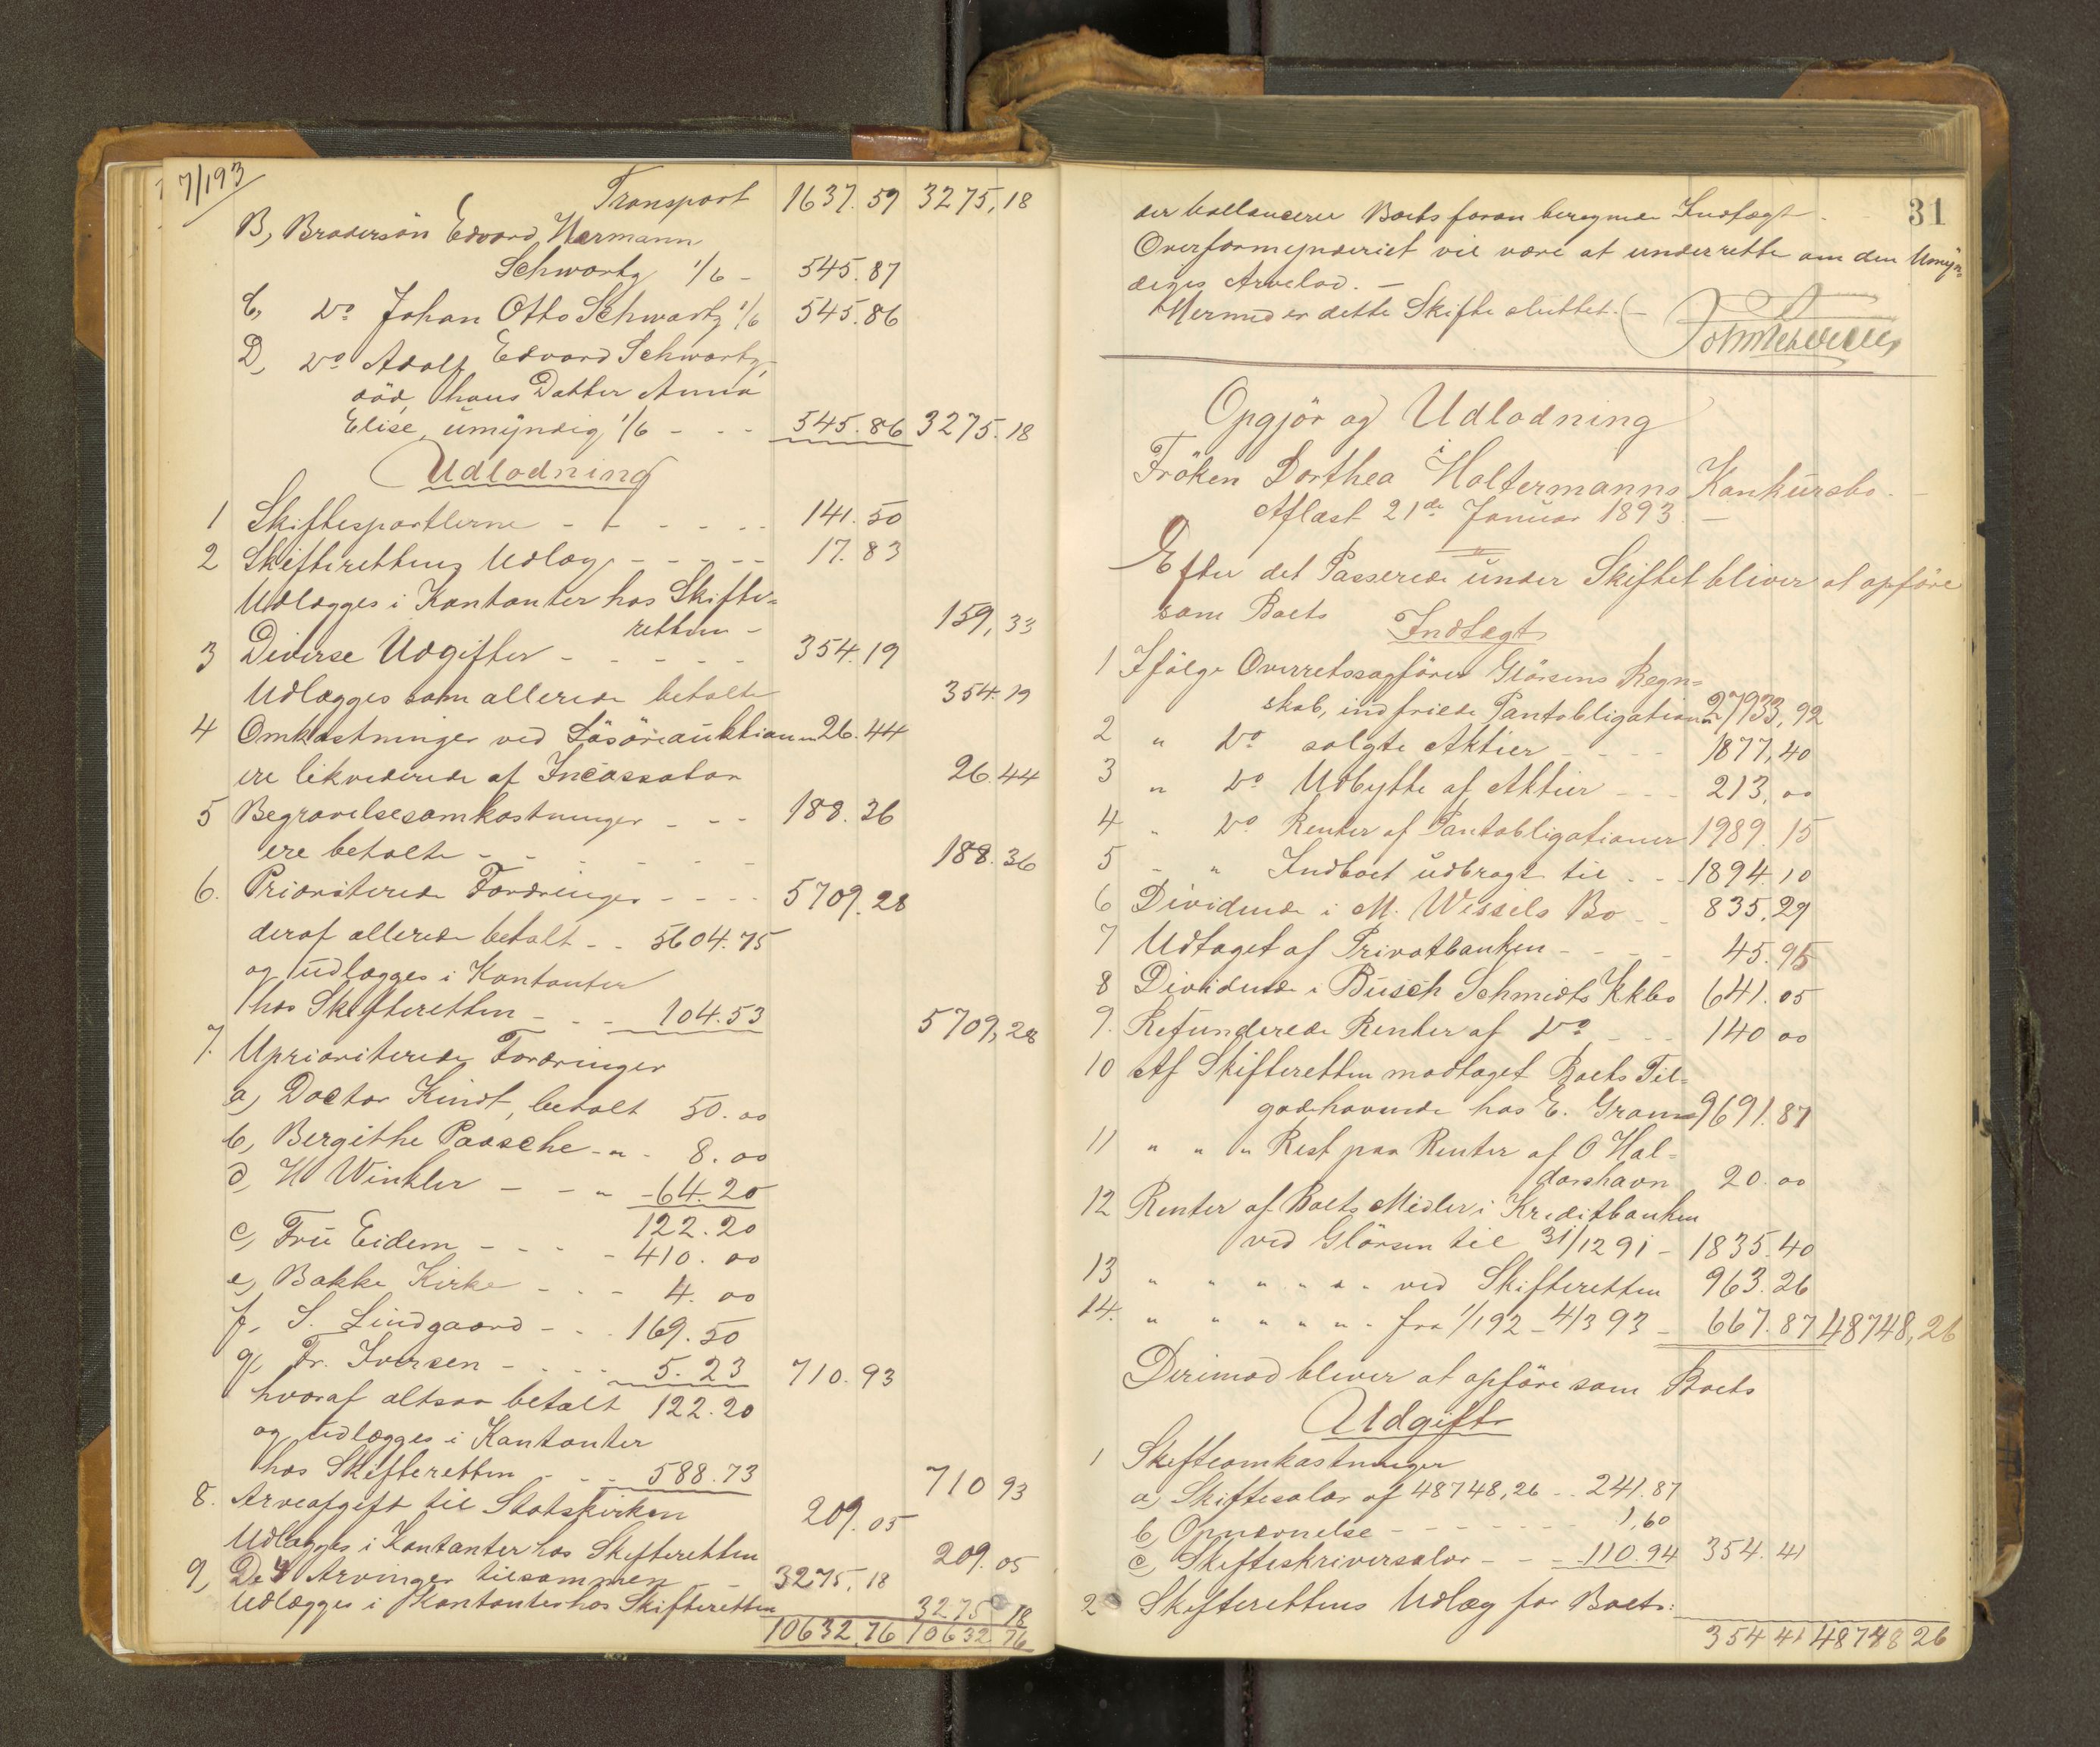 7/193
Transport 1637.59 3275,18
B, Brodersön Edvard Hermann
Schwartz 1/6 - 545.87
C, Do Johan Otto Schwartz 1/6 545.86
D, Do Adolf Edvard Schwartz,
död, hans Datter Anna
Elise, umyndig 1/6 - - - 545.86 3275.18
Udlodning
1 Skiftesportlerne - - - - - 141.50
2 Skifterettens Udlæg - - - - - 17.83
Udlægges i Kontanter hos Skifte=
retten - 159,33
3 Diverse Udgifter - - - - - 354.19
Udlægges som allerede betalte 354.19
4 Omkostninger ved Lösöreauktionen 26.44
ere likviderede af Incassator 26.44
5 Begravelsesomkostninger - - - 188.36
ere betalte - - - - - - 188.36
6. Prioriterede Fordringer - - - - 5709.28
deraf allerede betalt - - 5604.75
og udlægges i Kontanter
hos Skifteretten - - - 104.53 5709,28
7. Uprioriterede Fordringer
a, Doctor Kindt, betalt 50.00
b, Bergithe Paasche - " - 8.00
d, H Winkler - - " - 64.20
122.20
c, Fru Eidem - - - - 410.00
e, Bakke Kirke - - - 4.00
f, S. Lindgaard - - . 169.50
g, Fr. Iversen - - - - 5.23 710.93
hvoraf altsaa betalt 122.20
og udlægges i Kontanter
hos Skifteretten - - - 588.73 710 93
8. Arveafgift til Statskirken 209.05
Udlægges i Kontanter hos Skifteretten 209.05
9, De 4 Arvinger tilsammen - 3275.18
Udlægges i Kontanter hos Skifteretten 3275 18
10632.76 10632 76
31
der ballancerer Boets foran beregnede Indtægt.
Overformynderiet vil være at underrette om den Umyn=
diges Arvelod. -
Hermed er dette Skifte sluttet. -
Opgjör og Udlodning
i
Fröken Dorthea Holtermanns Konkursbo. -
Aflæst 21de Januar 1893. -
Efter det Passerede under Skiftet bliver at opföre
som Boets Indtægt
1 Ifölge Overretssagförer Glörsens Regn=
skab, indfriede Pantobligationer 27933,92
2 " Do solgte Aktier - - - - 1877,40
3 " Do Udbytte af Aktier - - - 213,00
4 " Do Renter af Pantobligationer 1989.15
5 " " Indboet udbragt til - - - 1894.10
6 Dividende i M. Wessels Bo - - 835.29
7 Udtaget af Privatbanken - - - - 45.95
8 Dividende i Busch Schmidts Kkbo 641.05
9. Refunderede Renter af Do - - - 140 00
10 Af Skifteretten modtaget Boets Til=
godehavende hos E. Gram 9691.87
11 " " " Rest paa Renter af O Hal=
dorshavn 20.00
12 Renter af Boets Midler i Kreditbanken
ved Glörsen til 31/12 91 - 1835.40
13 " " " " " " ved Skifteretten 963.26
14. " " " " " " fra 1/1 92 - 4/3 93 - 667.87 48748,26
Derimod bliver at opföre som Boets
Udgift
1 Skifteomkostninger
a, Skiftesalær af 48748,26 - - 241.87
b, Opnævnelse - - - - - - 1,60
c, Skifteskriversalær - - - 110.94 354.41
2 Skifterettens Udlæg for Boet:
354 41 48748 26